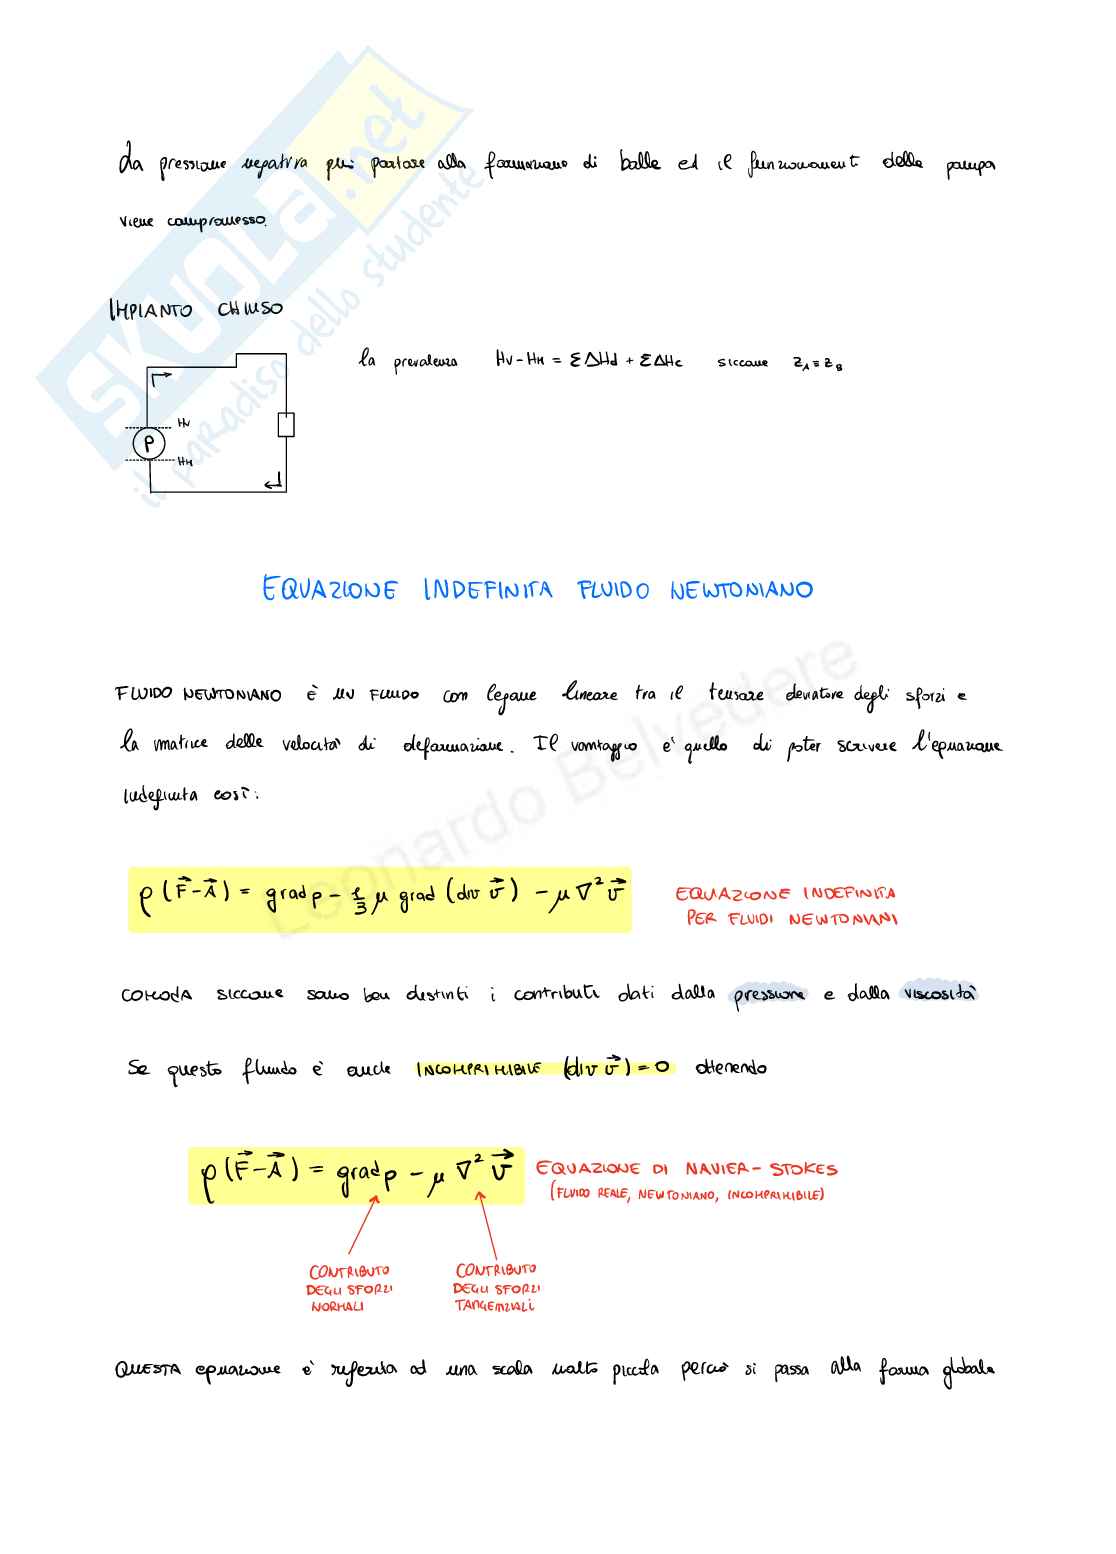 SKUOLA.net
il paradiso dello studente
La pressione negativa può portare alla formazione di bolle ed il funzionamenti della pompa
viene compromesso.
IMPIANTO CHIUSO
la prevalenza Hv-HM = ΣΔHd + ΣΔHc siccome zA = zB
Hv
P
HM
EQUAZIONE INDEFINITA FLUIDO NEWTONIANO
FLUIDO NEWTONIANO È UN FLUIDO con legame lineare tra il tensore deviatore degli sforzi e
la matrice delle velocità di deformazione. Il vantaggio è quello di poter scrivere l'equazione
indefinita così:
ρ(F⃗-A⃗) = grad p - 1/3 μ grad (div v⃗) - μ∇²v⃗
EQUAZIONE INDEFINITA
PER FLUIDI NEWTONIANI
COMODA siccome sono ben distinti i contributi dati dalla pressione e dalla viscosità
Se questo fluido è anche INCOMPRIMIBILE (div v⃗) = 0 ottenendo
ρ(F⃗-A⃗) = grad p - μ∇²v⃗
EQUAZIONE DI NAVIER-STOKES
(FLUIDO REALE, NEWTONIANO, INCOMPRIMIBILE)
CONTRIBUTO
DEGLI SFORZI
NORMALI
CONTRIBUTO
DEGLI SFORZI
TANGENZIALI
QUESTA equazione è riferita ad una scala molto piccola perciò si passa alla forma globale
Leonardo Belvedere